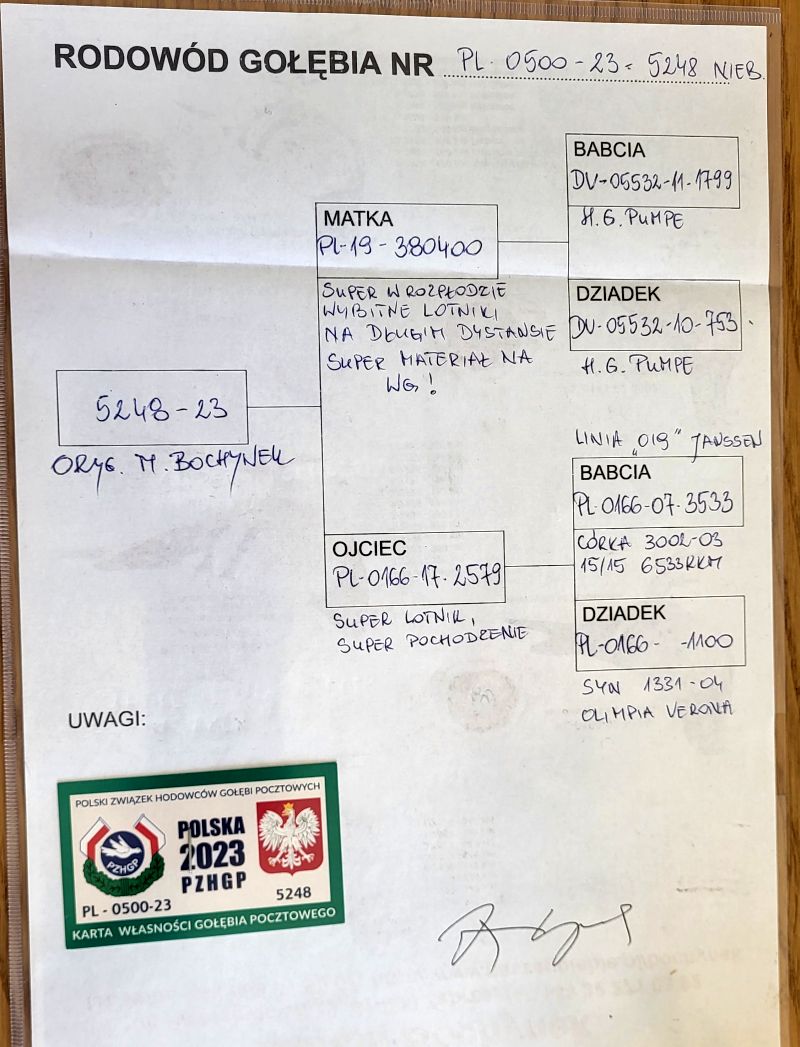 RODOWÓD GOŁĘBIA NR PL-0500-23-5248 NIEB.
BABCIA
DV-05532-11-1799
H.G. PUMPE
MATKA
PL-19-380400
SUPER W ROZPŁODZIE
WYBITNE LOTNIKI
NA DŁUGIM DYSTANSIE
SUPER MATERIAŁ NA
WG!
DZIADEK
DV-05532-10-753
H.G. PUMPE
5248-23
ORYG. M. BOCHYNEK
LINIA „019" JANSSEN
BABCIA
PL-0166-07-3533
CÓRKA 3002-03
15/15 6533RKM
OJCIEC
PL-0166-17-2579
SUPER LOTNIK,
SUPER POCHODZENIE
DZIADEK
PL-0166- -1100
SYN 1331-04
OLIMPIA VERONA
UWAGI:
POLSKI ZWIĄZEK HODOWCÓW GOŁĘBI POCZTOWYCH
PZHGP
POLSKA
2023
PZHGP
PL - 0500-23 5248
KARTA WŁASNOŚCI GOŁĘBIA POCZTOWEGO